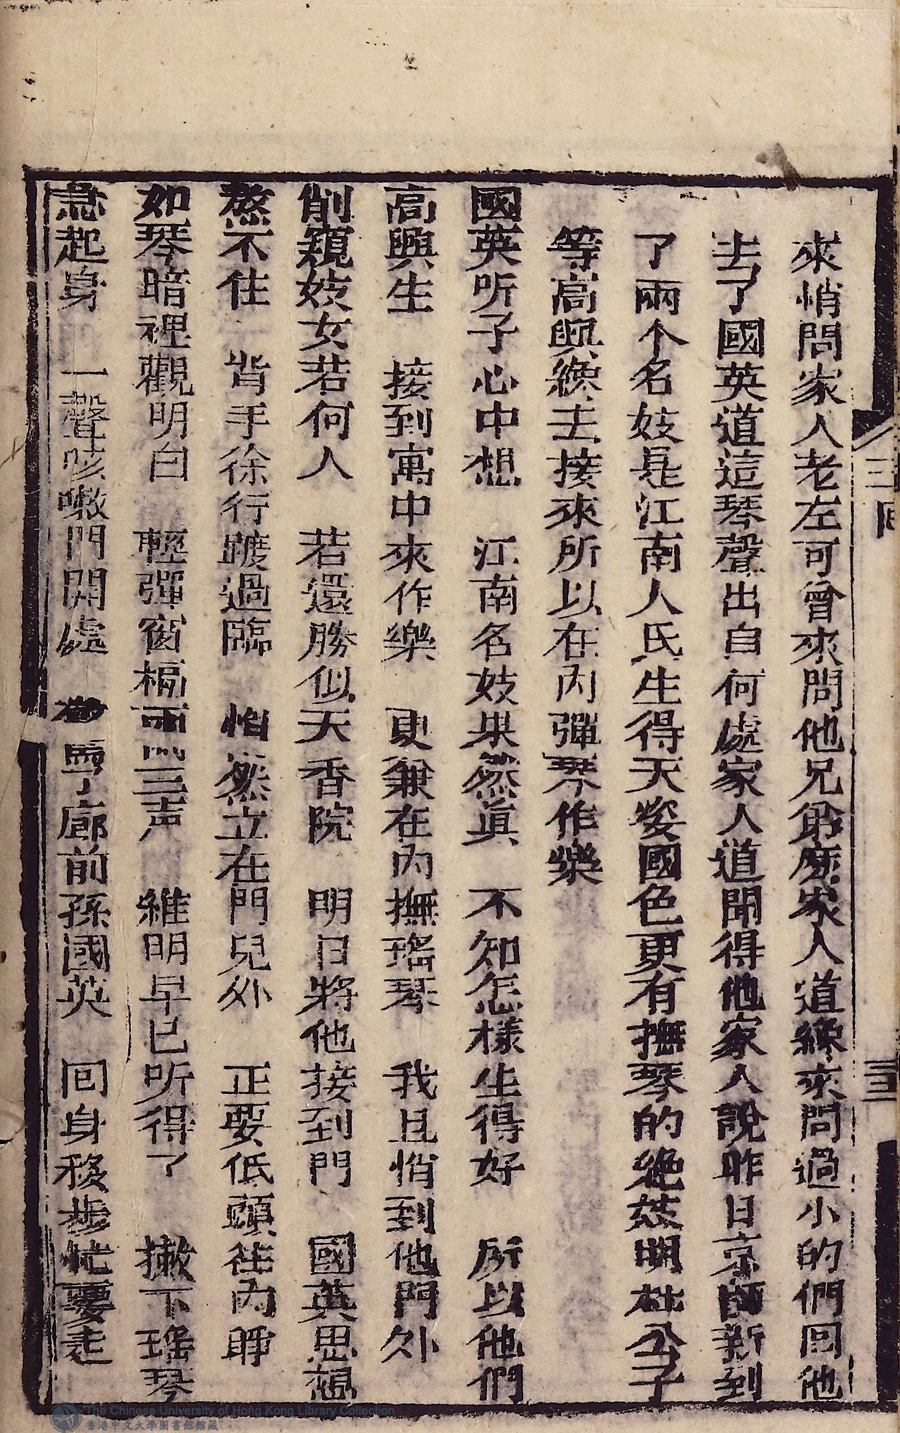 來悄問家人老左可曾來問他兄爺麽家人道纔來問過小的們回他
去了國英道這琴聲出自何處家人道聞得他家人說昨日京師新到
了兩个名妓是江南人氏生得天姿國色更有撫琴的絶茲明杜公子
等高興纔去接來所以在內彈琴作樂
國英听了心中想 江南名妓果然眞 不知怎樣生得好 所以他們
高興生 接到寓中來作樂 更兼在內撫瑤琴 我且悄到他門外
削窺妓女若何人 若還勝似天香院 明日將他接到門 國英思想
熬不住 背手徐行踱過臨 悄然立在門兒外 正要低頭往內睜
如琴暗裡觀明白 輕彈窗槅兩三声 維明早已听得了 撇下瑤琴
急起身 一聲咳嗽門開處 廊前孫國英 回身移步忙要走
三回
三三
The Chinese University of Hong Kong Library Collection
香港中文大學圖書館館藏